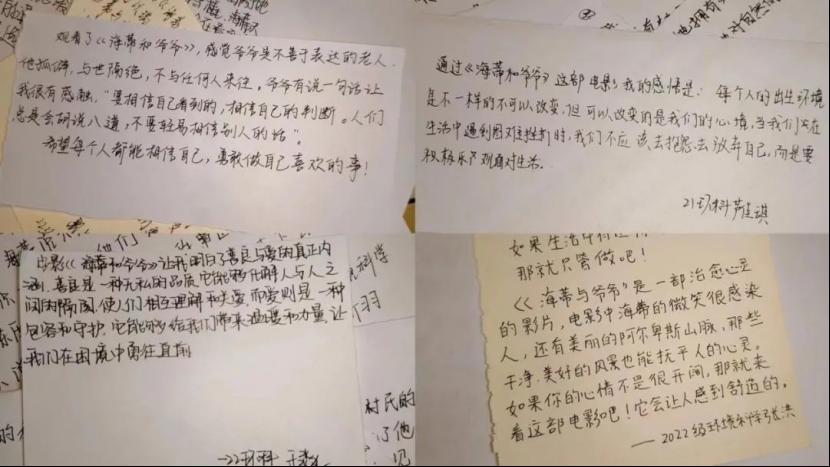 观看了《海蒂和爷爷》,感觉爷爷是不善于表达的老人.
他孤僻,与世隔绝,不与任何人来往。爷爷有说一句话让
我很有感触,"要相信自己看到的,相信自己的判断。人们
总是会胡说八道,不要轻易相信别人的话"。
希望每个人都能相信自己,勇敢做自己喜欢的事!
通过《海蒂和爷爷》这部电影,我的感悟是: 每个人的出生环境
是不一样的不可以改变,但可以改变的是我们的心境,当我们在
生活中遇到困难挫折时,我们不应该去抱怨去放弃自己,而是要
积极乐观面对生活。
21环科
电影《海蒂和爷爷》让我明白了善良与爱的真正内
涵,善良是一种无私的品质,它能够化解人与人之
间的隔阂,使人们相互理解和关爱,而爱则是一种
包容和守护,它能够给我们带来温暖和力量,让
我们在困境中勇往直前
22环科
他们
科学
村民的
了他
见
如果生活中
那就只管做吧!
《海蒂与爷爷》是一部治愈心灵
的影片,电影中海蒂的微笑很感染
人,还有美丽的阿尔卑斯山脉,那些
干净、美好的风景也能抚平人的心灵。
如果你的心情不是很开阔,那就来
看这部电影吧!它会让人感到舒适的。
——2022级环境科学张洪